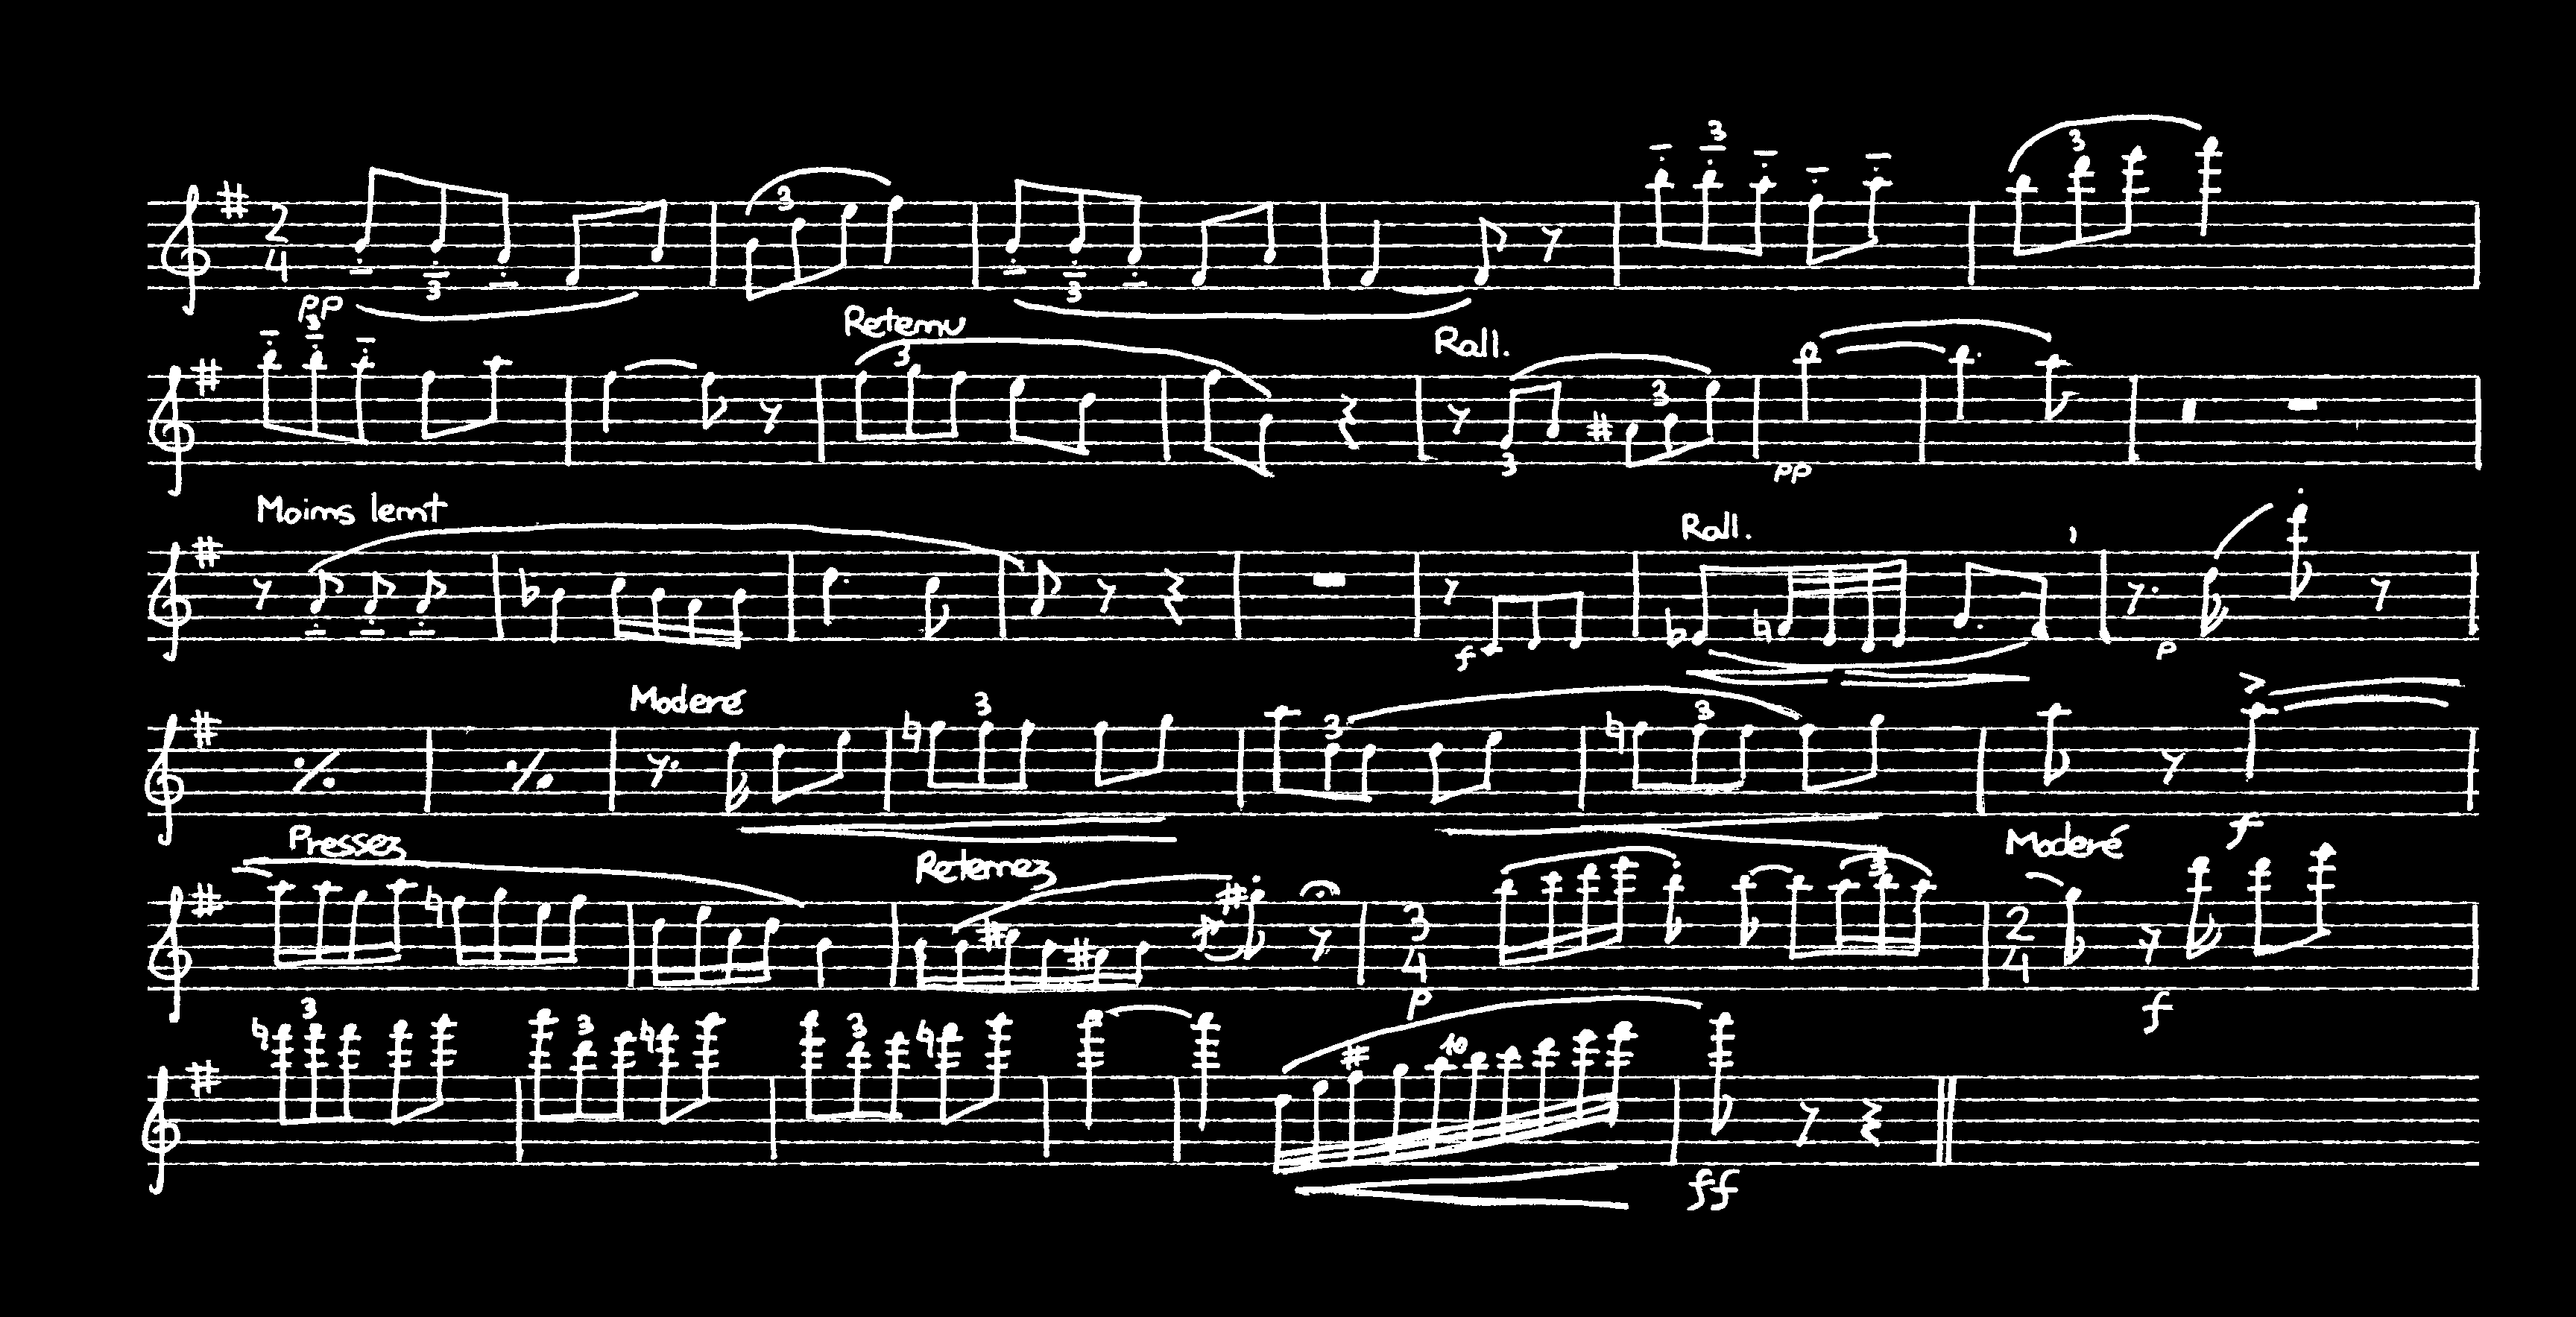 2
4
3
3
3
3
3
pp
3
Retenu
3
Rall.
3
3
pp
Moins lent
Rall.
f
p
Moderé
3
3
3
f
Pressez
Retenez
3
Moderé
3
4
2
4
p
f
3
3
3
10
ff